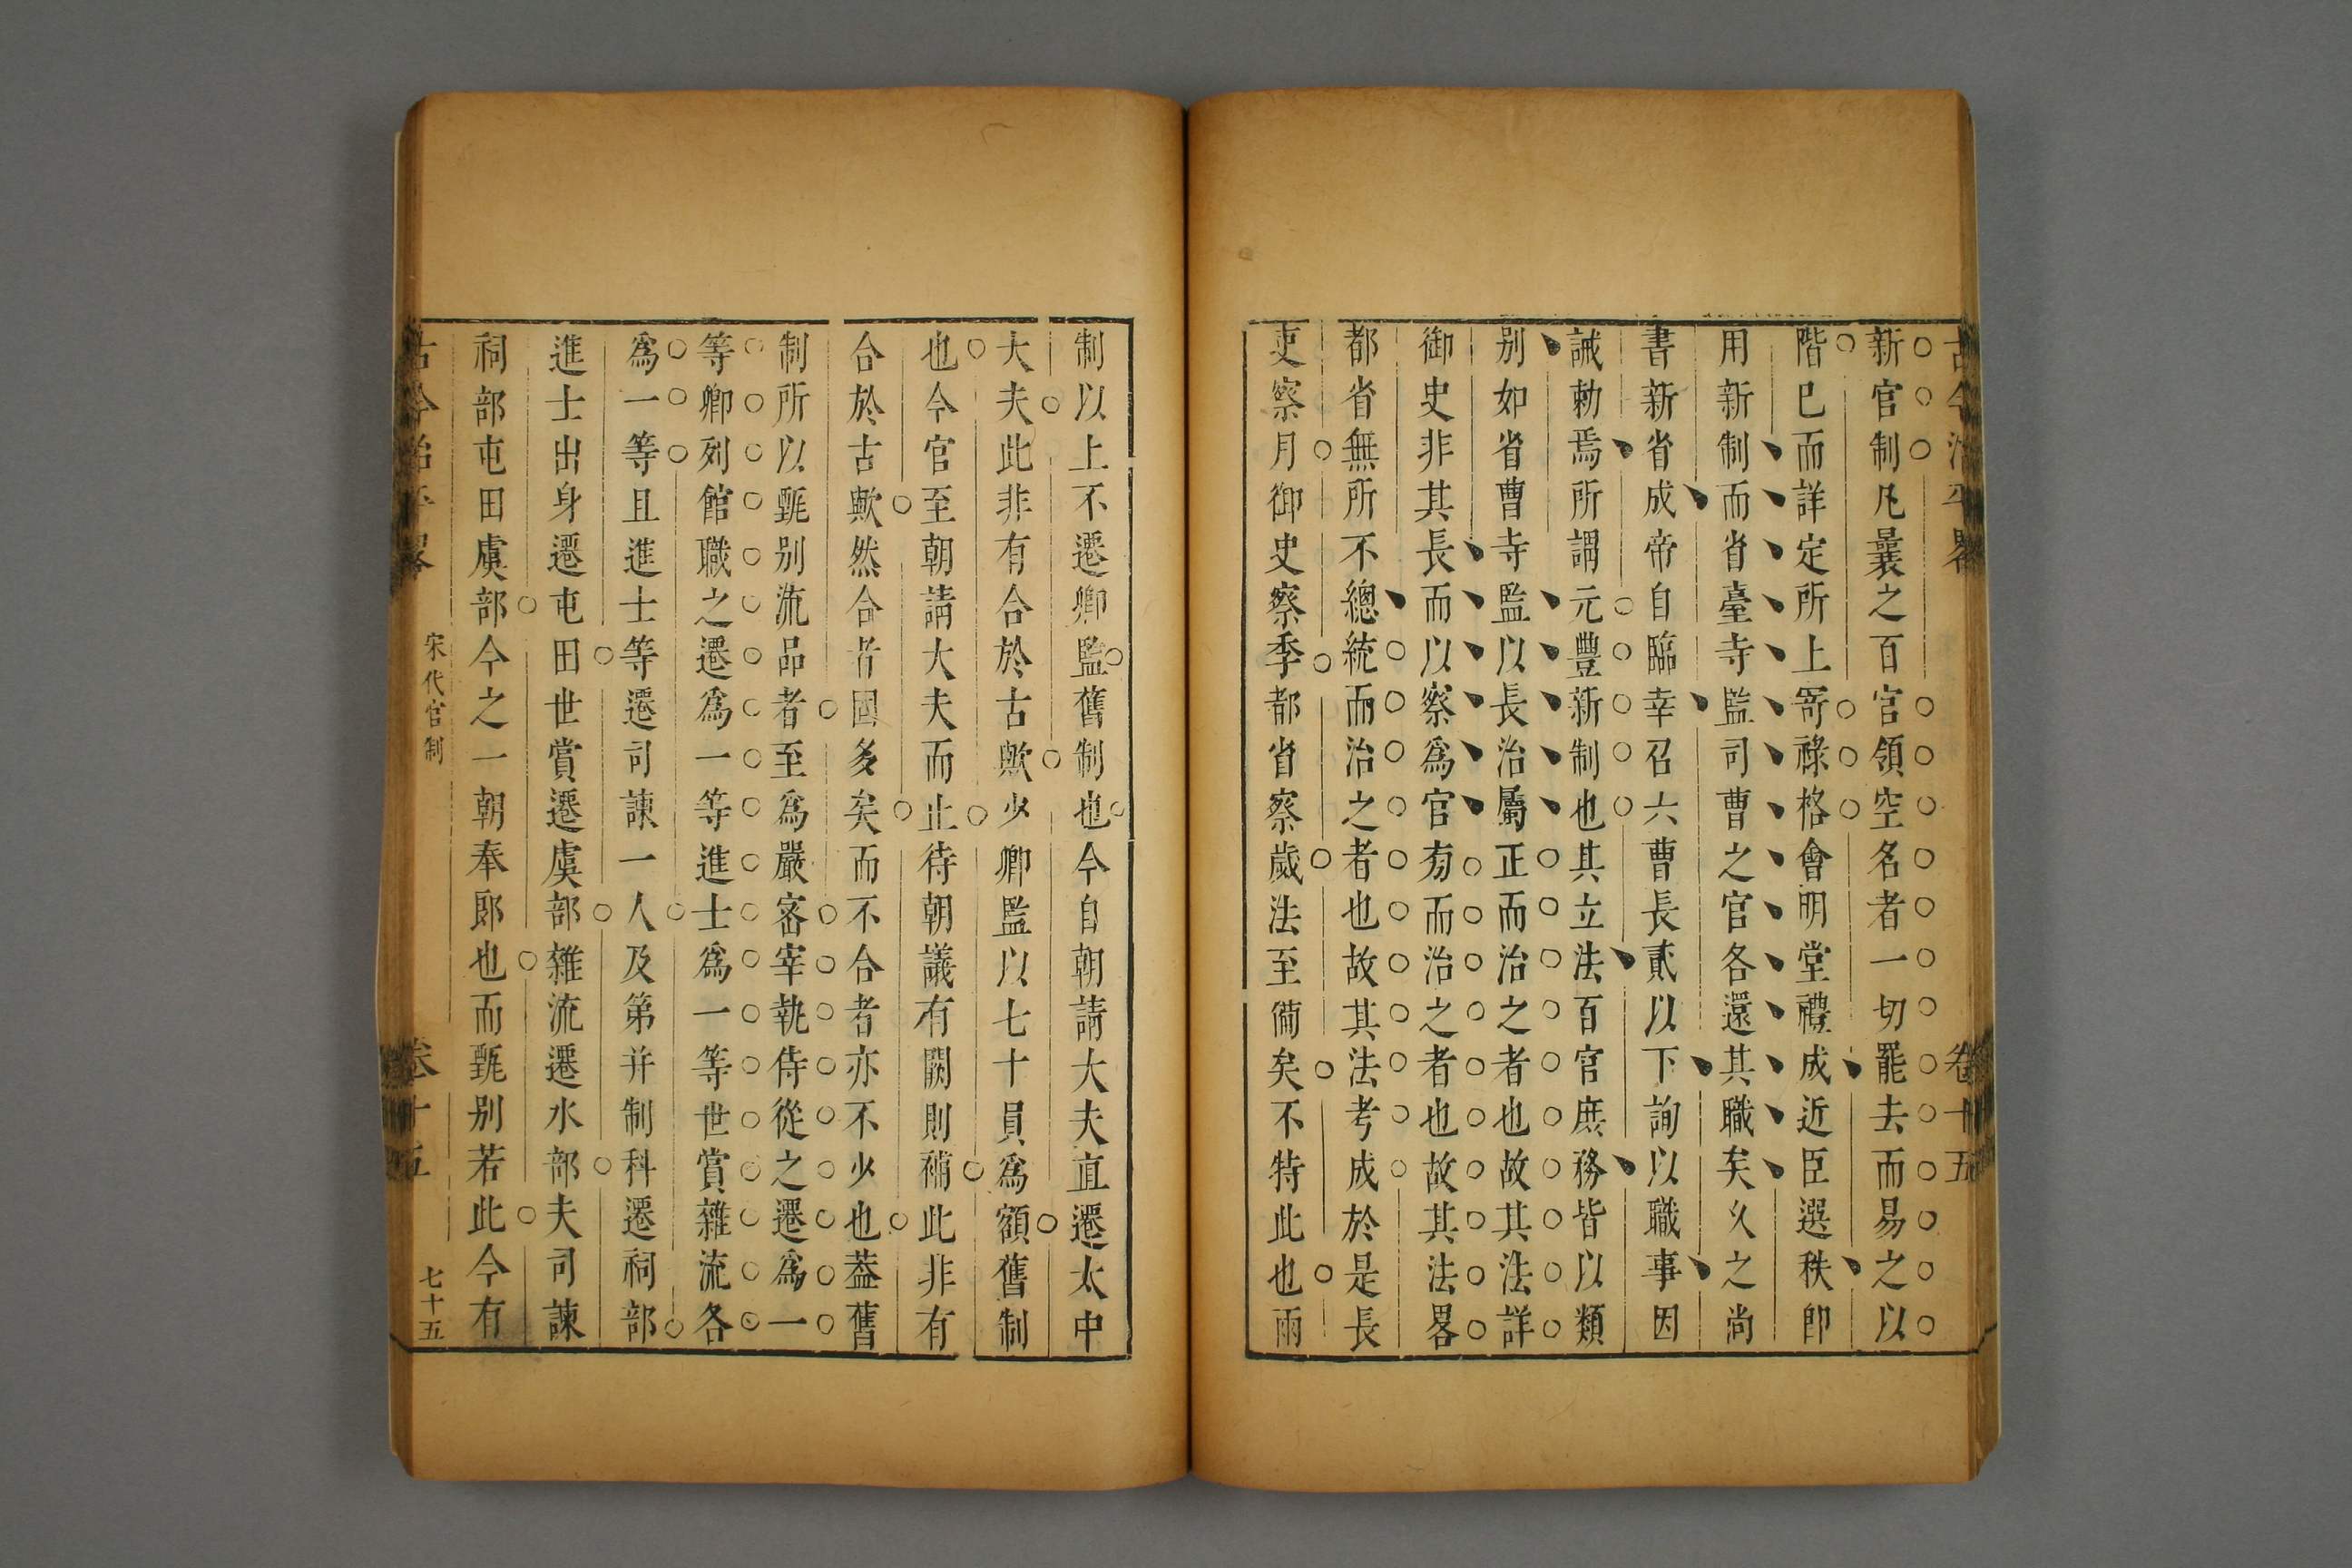 古今治平畧 卷十五
新官制凡曩之百官領空名者一切罷去而易之以
階巳而詳定所上寄祿格會明堂禮成近臣選秩卽
用新制而省臺寺監司曹之官各還其職矣久之尚
書新省成帝自臨幸召六曹長貳以下詢以職事因
誡勅焉所謂元豐新制也其立法百官庶務皆以類
别如省曹寺監以長治屬正而治之者也故其法詳
御史非其長而以察爲官旁而治之者也故其法畧
都省無所不總統而治之者也故其法考成於是長
吏察月御史察季都省察歲法至備矣不特此也兩
制以上不遷卿監舊制也今自朝請大夫直遷太中
大夫此非有合於古歟少卿監以七十員爲額舊制
也今官至朝請大夫而止待朝議有闕則補此非有
合於古歟然合者固多矣而不合者亦不少也葢舊
制所以甄别流品者至爲嚴宻宰執侍從之遷爲一
等卿列館職之遷爲一等進士爲一等世賞雜流各
爲一等且進士等遷司諫一人及第并制科遷祠部
進士出身遷屯田世賞遷虞部雜流遷水部夫司諫
祠部屯田虞部今之一朝奉郎也而甄别若此今有
古今治平畧 宋代官制 卷十五 七十五